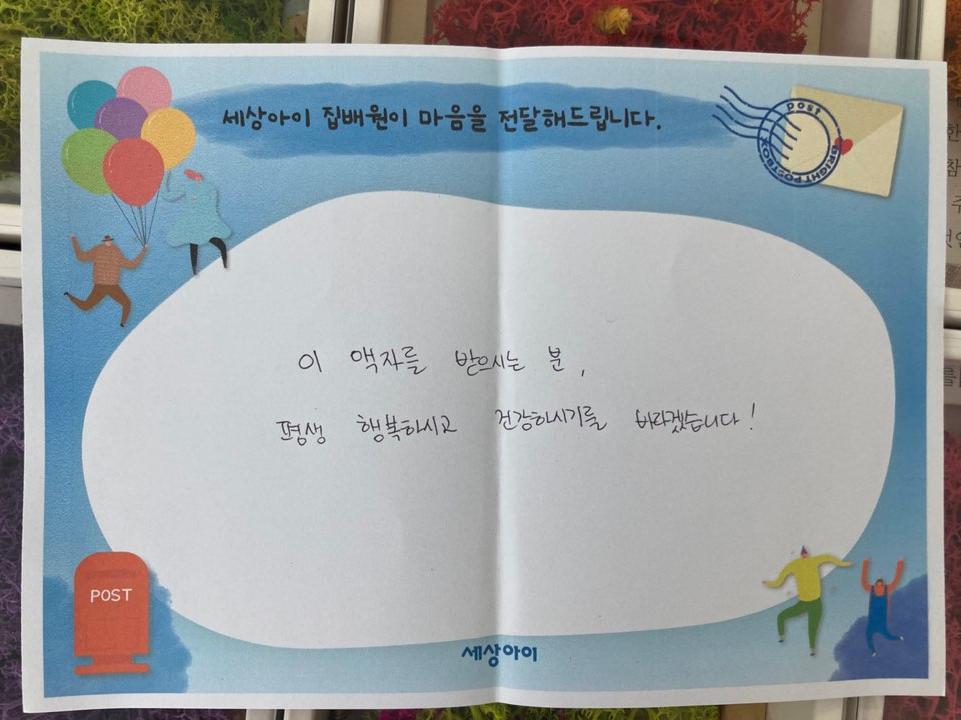 세상아이 집배원이 마음을 전달해드립니다.
POST
BRIGHT POSTBOX
이 액자를 받으시는 분,
평생 행복하시고 건강하시기를 바라겠습니다!
POST
세상아이